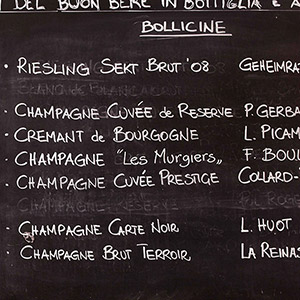 DEL BUON BERE IN BOTTIGLIA E A
BOLLICINE
• RIESLING SEKT BRUT '08 GEHEIMRAT
• CHAMPAGNE CUVÉE de RESERVE P. GERBA
• CREMANT de BOURGOGNE L. PICAM
• CHAMPAGNE "Les Murgiers„ F. BOUL
• CHAMPAGNE CUVÉE PRESTIGE COLLARD-
• CHAMPAGNE CARTE NOIR L. HUOT
• CHAMPAGNE BRUT TERROIR LA REINAS